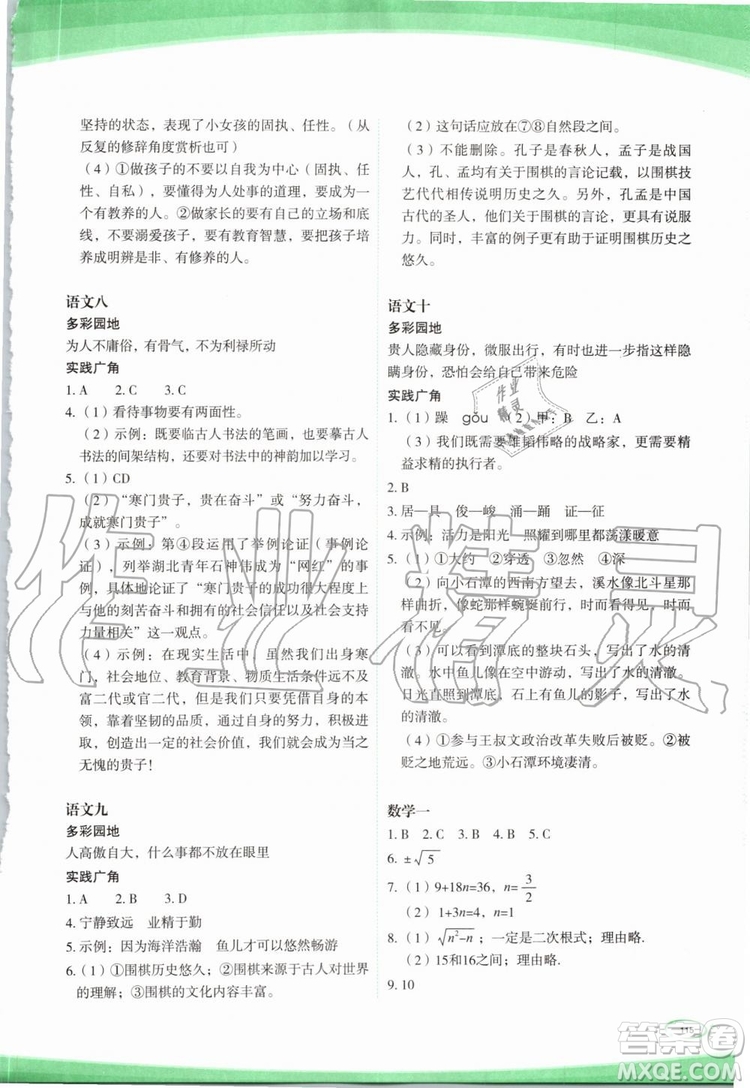 坚持的状态，表现了小女孩的固执、任性。（从
反复的修辞角度赏析也可）
（4）①做孩子的不要以自我为中心（固执、任
性、自私），要懂得为人处事的道理，要成为一
个有教养的人。②做家长的要有自己的立场和底
线，不要溺爱孩子，要有教育智慧，要把孩子培
养成明辨是非、有修养的人。
语文八
多彩园地
为人不庸俗，有骨气，不为利禄所动
实践广角
1. A　2. C　3. C
4.（1）看待事物要有两面性。
（2）示例：既要临古人书法的笔画，也要摹古人
书法的间架结构，还要对其中的神韵加以学习。
5.（1）CD
（2）“寒门贵子，贵在奋斗”或“努力奋斗，
成就寒门贵子”。
（3）示例：第④段运用了举例论证（事例论
证），列举湖北青年石神伟成为“网红”的事
例，具体地论证了“寒门贵子的成功很大程度上
与他的刻苦奋斗和拥有的社会信任以及社会支持
力量相关”这一观点。
（4）示例：在现实生活中，虽然我们出身寒
门，社会地位、教育背景、物质生活条件远不及
富二代或官二代，但是我们可以凭借自身的本
领，靠着坚韧的品质，通过不断的努力，积极进
取，创造出一定的社会价值，我们就会成为真正
无愧的贵子！
语文九
多彩园地
人高傲自大，什么事都不放在眼里
实践广角
1. A　2. B　3. D
4. 宁静致远　业精于勤
5. 示例：因为海洋浩瀚　鱼儿才可以悠然畅游
6.（1）①围棋历史悠久；②围棋来源于古人对世界
的理解；③围棋的文化内容丰富。
（2）这句话应放在⑦⑧自然段之间。
（3）不能删除。孔子是春秋人，孟子是战国
人，孔、孟均有关于围棋的言论记载，以围棋技
艺代代相传说明历史之久。另外，孔孟是中国
古代的圣人，他们关于围棋的言论，更有说服
力。同时，丰富的例子更有助于证明围棋历史之
悠久。
语文十
多彩园地
贵人隐藏身份，微服出行，有时也进一步指这样隐
瞒身份，恐怕会给自己带来危险
实践广角
1.（1）躁　gǒu（2）甲：B　乙：A
（3）我们既需要雄韬伟略的战略家，更需要精
益求精的执行者。
2. B
3. 居—具　俊—峻　涌—踊　证—征
4. 示例：活力是阳光　照耀到哪里都荡漾暖意
5.（1）①大约　②穿透　③忽然　④深
（2）向小石潭的西南方望去，溪水像北斗星那
样曲折，像蛇那样蜿蜒前行，有时看得见，有时
看不见。
（3）写出看到潭底的整块石头，写出了水的清
澈。水中鱼儿像在空中游动，写出了水的清澈。
日光直照潭底，石上有鱼儿的影子，写出了水
的清澈。
（4）①参与王叔文政治改革失败后被贬。②被
贬之地荒远。③小石潭环境凄清。
数学一
1. B　2. C　3. C　4. B　5. C
6. ±√5
7.（1）9+18n=36，n=3/2
（2）1+3n=4，n=1
8.（1）√(n²−n)；一定是二次根式；理由略.
（2）15和16之间；理由略.
9. 10
115
作业精灵
作业
精灵
答案圈
MXQE.COM